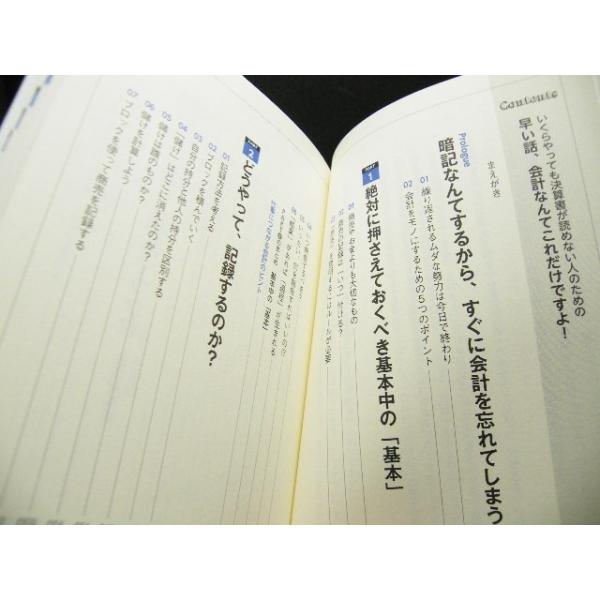 Contents
いくらやっても決算書が読めない人のための
早い話、会計なんてこれだけですよ!
まえがき
Prologue
暗記なんてするから、すぐに会計を忘れてしまう
01 繰り返されるムダな努力は今日で終わり
02 会計をモノにするための5つのポイント
PART 1
絶対に押さえておくべき基本中の「基本」
01 商売やお金よりも大切なもの
02 商売の記録は「いつ」付ける?
PART 2
どうやって、記録するのか?
01 記録方法を考える
02 ブロックを積んでいく
03 自分の持分と他人の持分を区別する
04 「儲け」はどこに消えたのか?
05 「儲け」は誰のものか?
06 儲けを計算しよう
07 ブロックを使って商売を記録する